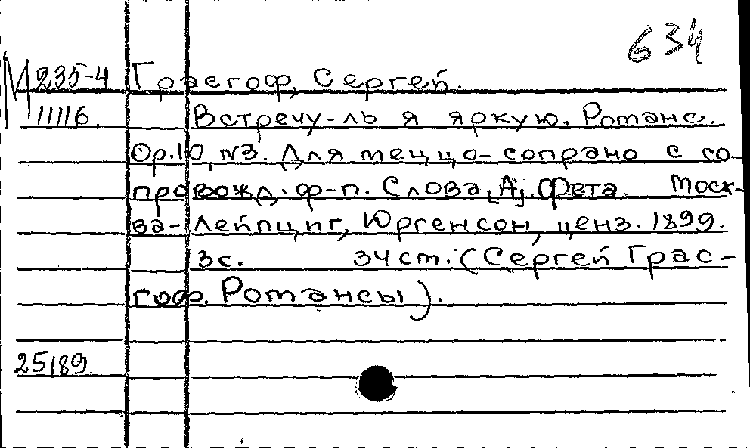 634
М 235-4 Грасгоф, Сергей.
11116. Встречу-ль я яркую. Романс.
Op.10, №3. Для меццо-сопрано с со-
провожд. ф-п. Слова [А]. Фета. Моск-
ва-Лейпциг, Юргенсон, ценз. 1899.
3с. 34ст. (Сергей Грас-
гоф. Романсы).
25189